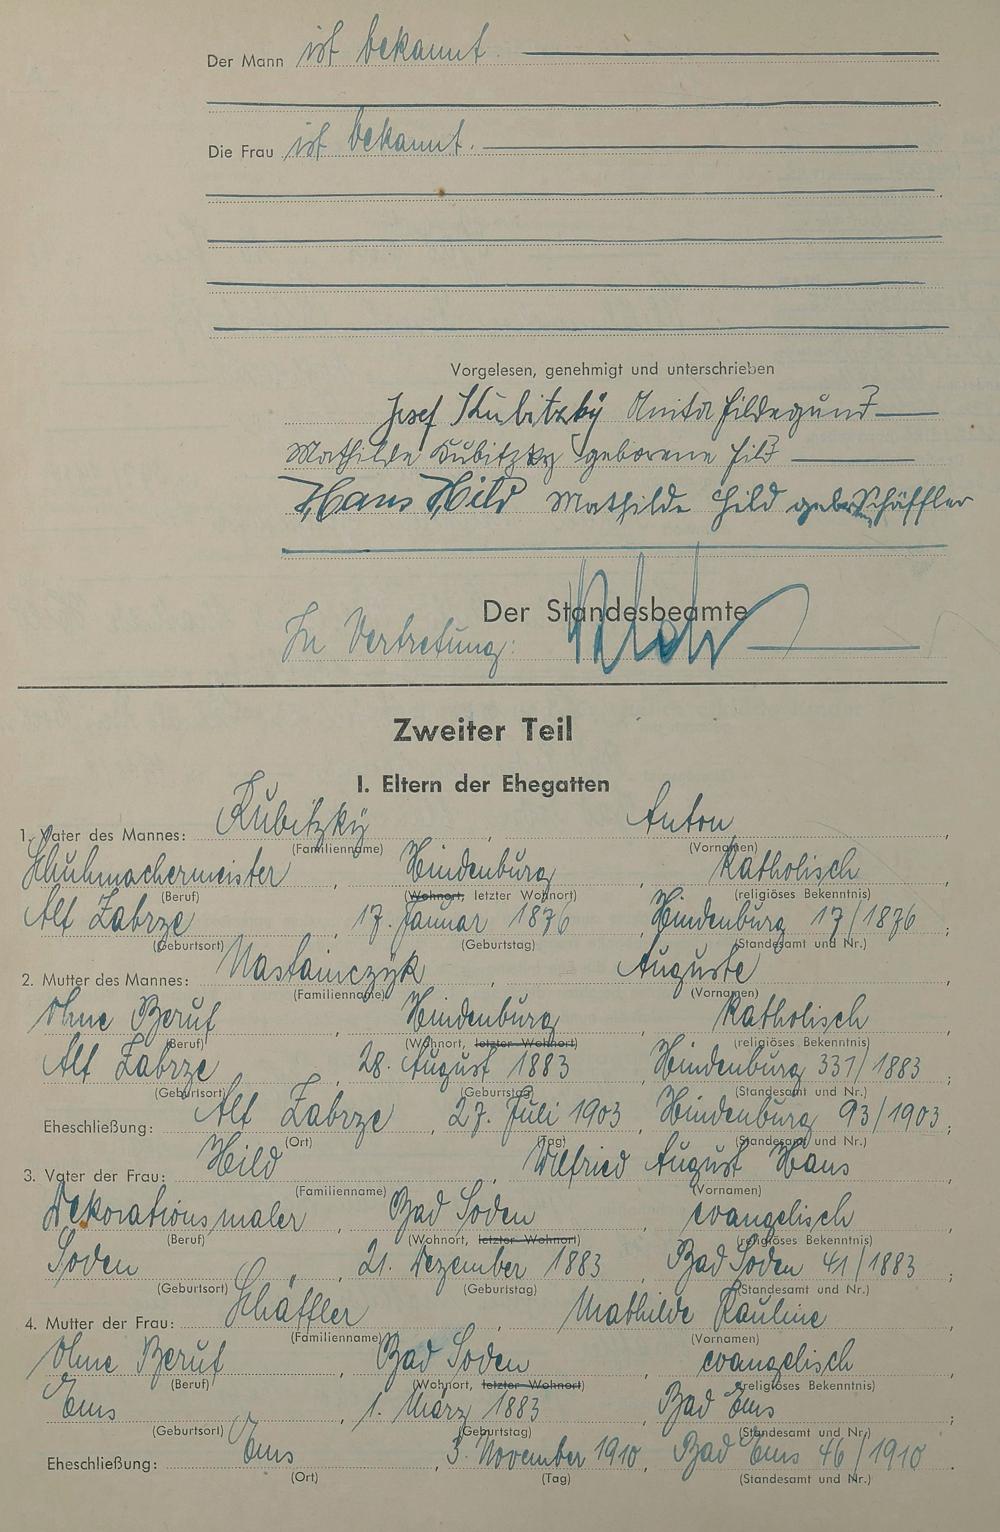 Der Mann ist bekannt.
Die Frau ist bekannt.
Vorgelesen, genehmigt und unterschrieben
Josef Kubitzky Anita Hildegund
Mathilde Kubitzky geborene Hild
Hans Hild Mathilde Hild geb. Schäffler
Der Standesbeamte
In Vertretung:
Zweiter Teil
I. Eltern der Ehegatten
1. Vater des Mannes: Kubitzky, Anton,
(Familienname) (Vornamen)
Schuhmachermeister, Hindenburg, katholisch
(Beruf) (Wohnort, letzter Wohnort) (religiöses Bekenntnis)
Alt Zabrze, 17. Januar 1876, Hindenburg 17/1876;
(Geburtsort) (Geburtstag) (Standesamt und Nr.)
2. Mutter des Mannes: Nastainczyk, Auguste,
(Familienname) (Vornamen)
Ohne Beruf, Hindenburg, katholisch
(Beruf) (Wohnort, letzter Wohnort) (religiöses Bekenntnis)
Alt Zabrze, 28. August 1883, Hindenburg 331/1883;
(Geburtsort) (Geburtstag) (Standesamt und Nr.)
Eheschließung: Alt Zabrze, 27. Juli 1903, Hindenburg 93/1903;
(Ort) (Tag) (Standesamt und Nr.)
3. Vater der Frau: Hild, Wilfried August Hans,
(Familienname) (Vornamen)
Dekorationsmaler, Bad Soden, evangelisch
(Beruf) (Wohnort, letzter Wohnort) (religiöses Bekenntnis)
Soden, 21. Dezember 1883, Bad Soden 41/1883;
(Geburtsort) (Geburtstag) (Standesamt und Nr.)
4. Mutter der Frau: Schäffler, Mathilde Pauline,
(Familienname) (Vornamen)
Ohne Beruf, Bad Soden, evangelisch
(Beruf) (Wohnort, letzter Wohnort) (religiöses Bekenntnis)
Ems, 1. März 1883, Bad Ems;
(Geburtsort) (Geburtstag) (Standesamt und Nr.)
Eheschließung: Ems, 3. November 1910, Bad Ems 46/1910.
(Ort) (Tag) (Standesamt und Nr.)